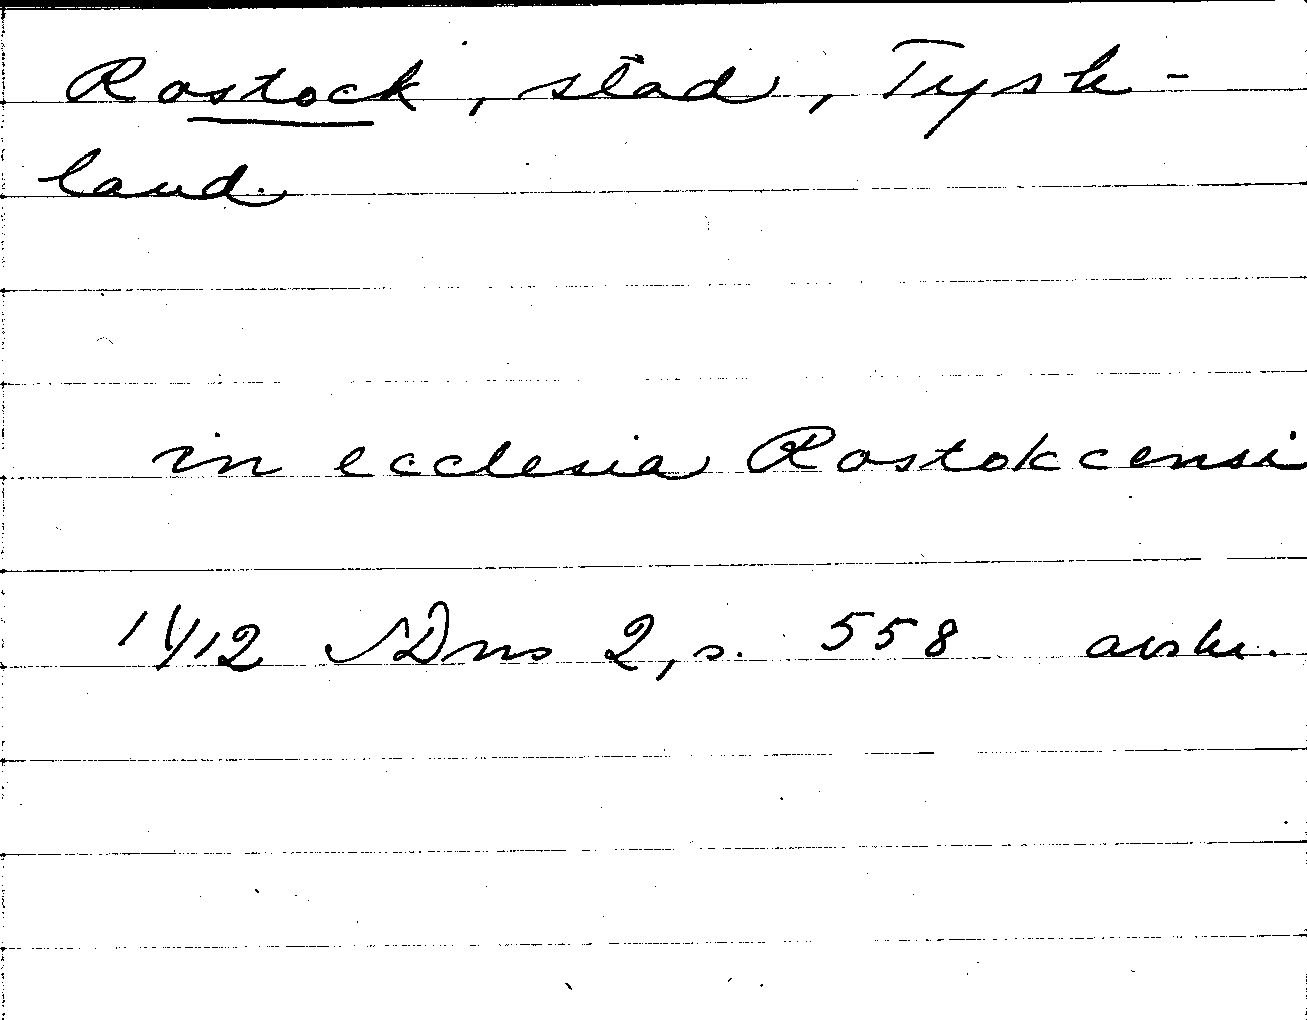 Rostock, stad, Tysk-
land.
in ecclesia Rostokcensi
1412 SDns 2, s. 558 avskr.